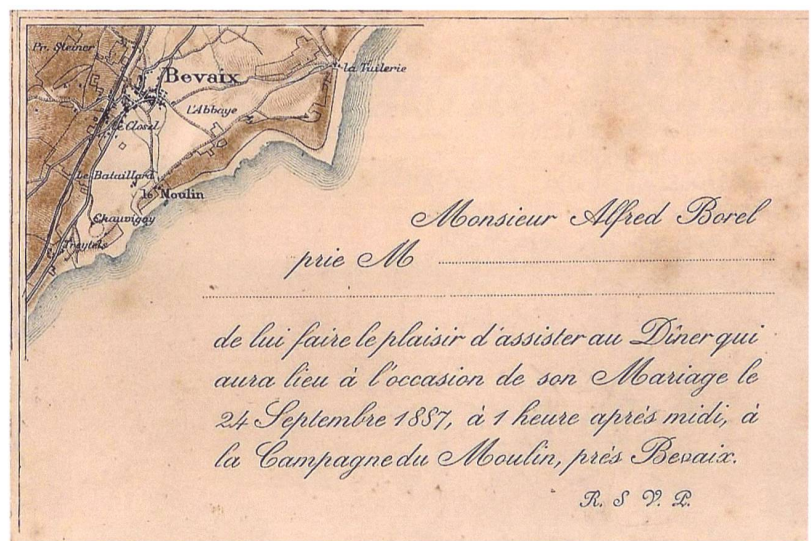 Pr. Steiner
Bevaix
la Tuilerie
L'Abbaye
le Closel
Le Bataillard
le Moulin
Chauvigny
Treytels
Monsieur Alfred Borel
prie M
de lui faire le plaisir d'assister au Dîner qui
aura lieu à l'occasion de son Mariage le
24 Septembre 1887, à 1 heure après midi, à
la Campagne du Moulin, près Bevaix.
R. S V. P.